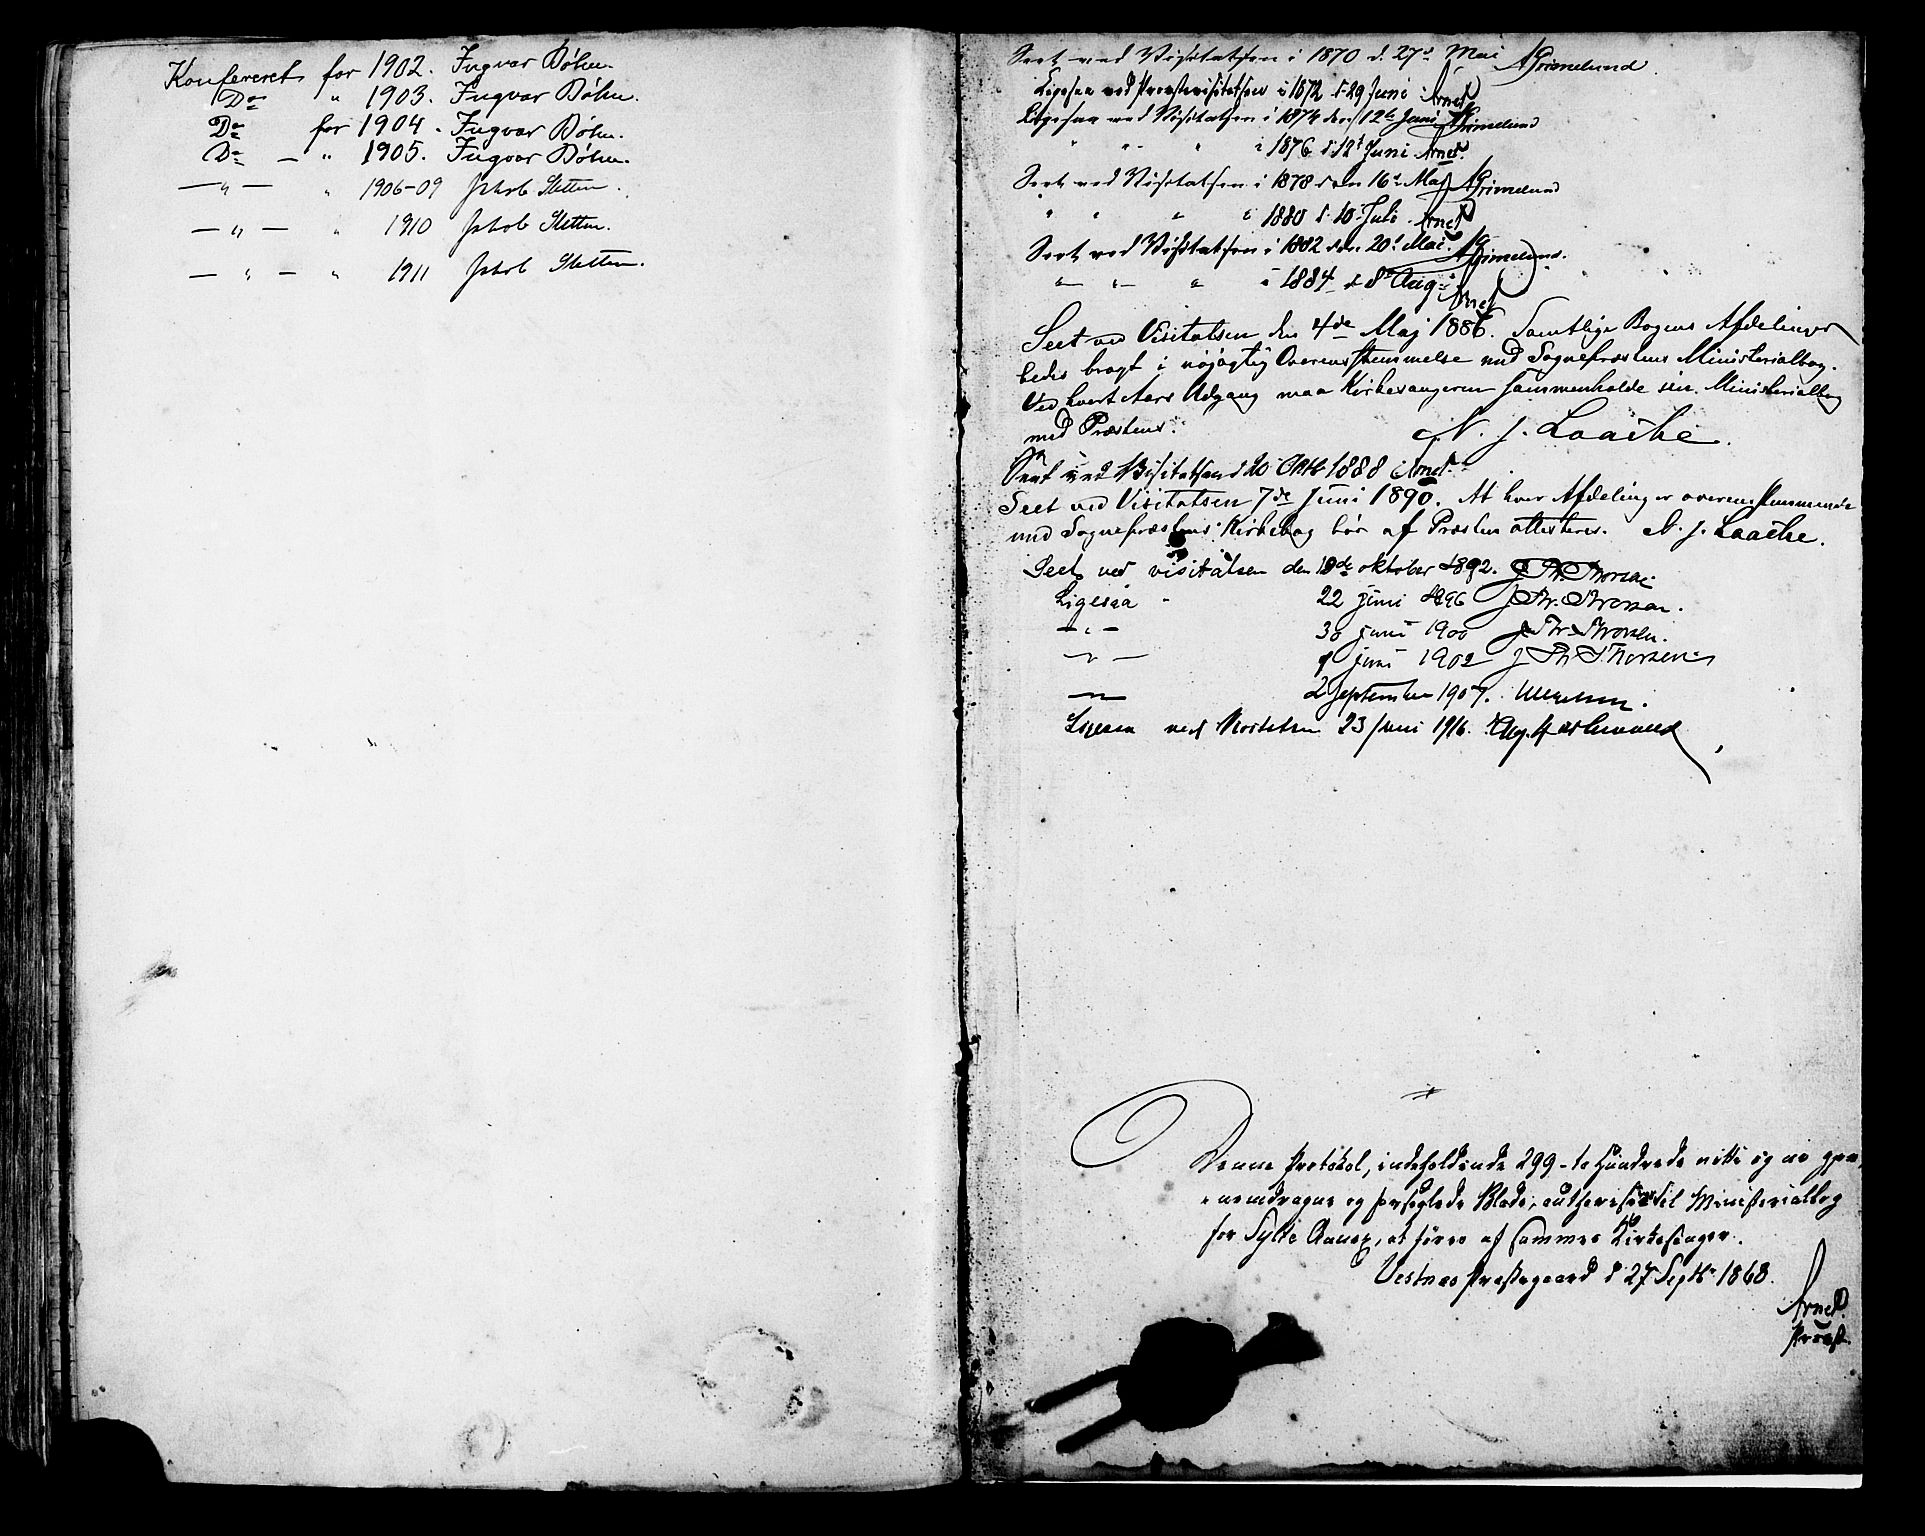 Konfereret for 1902. Ingvar Bøhn.
Do " 1903. Ingvar Bøhn.
Do for 1904. Ingvar Bøhn.
Do — " 1905. Ingvar Bøhn.
—"— " 1906-09 Jakob Sletten.
—"— " 1910 Jakob Sletten.
—"— " 1911 Jakob Sletten.
Seet ved Visitatsen i 1870 d. 27de Mai AGrimelund.
Ligesaa ved Provstevisitatsen i 1872 d 29 Juni Arnet
Ligesaa ved Visitatsen i 1874 den 12te Juni AGrimelund
" " " i 1876 d 12t Juni Arnet.
Seet ved Visitatsen i 1878 den 16de Maj AGrimelund
" " " i 1880 d. 10 Juli Arnet
Seet ved Visitatsen i 1882 den 20de Mai AGrimelund.
" " " i 1884 d 8de Aug. Arnet
Seet ved Visitatsen den 4de Maj 1886. Samtlige Bogens Afdelinger
bedes bragt i nøjagtig Overensstemmelse med Sognepræstens Ministerialbog.
Ved hvert Aars Udgang maa Kirkesangeren sammenholde sin Ministerialbog
med Præstens. N. J. Laache.
Seet ved Visitatsen d 20 Oktb 1888 Arnet.
Seet ved Visitatsen 7de Juni 1890. At hver Afdeling er overensstemmende
med Sognepræstens Kirkebog bør af Præsten attesteres. N. J. Laache.
Seet ved visitatsen den oktober 1892. J Th. Thorsen
Ligesaa " 22 juni 1896 J Thr. Thorsen.
—"— 30 juni 1900 J Thr Thorsen.
—"— juni 1902 J Th Thorsen
—"— 2 september 1907.
Ligesaa ved Visitatsen 23 juni 1916.
Denne Protokol, indeholdende 299 - to Hundrede nitti og ni gjen-
nemdragne og forseglede Blade, authoriseres til Ministerialbog
for Sylte Annex, at føres af sammes Kirkesanger.
Vestnæs Præstegaard d 27 Septb. 1868.
Arnet
Provst.